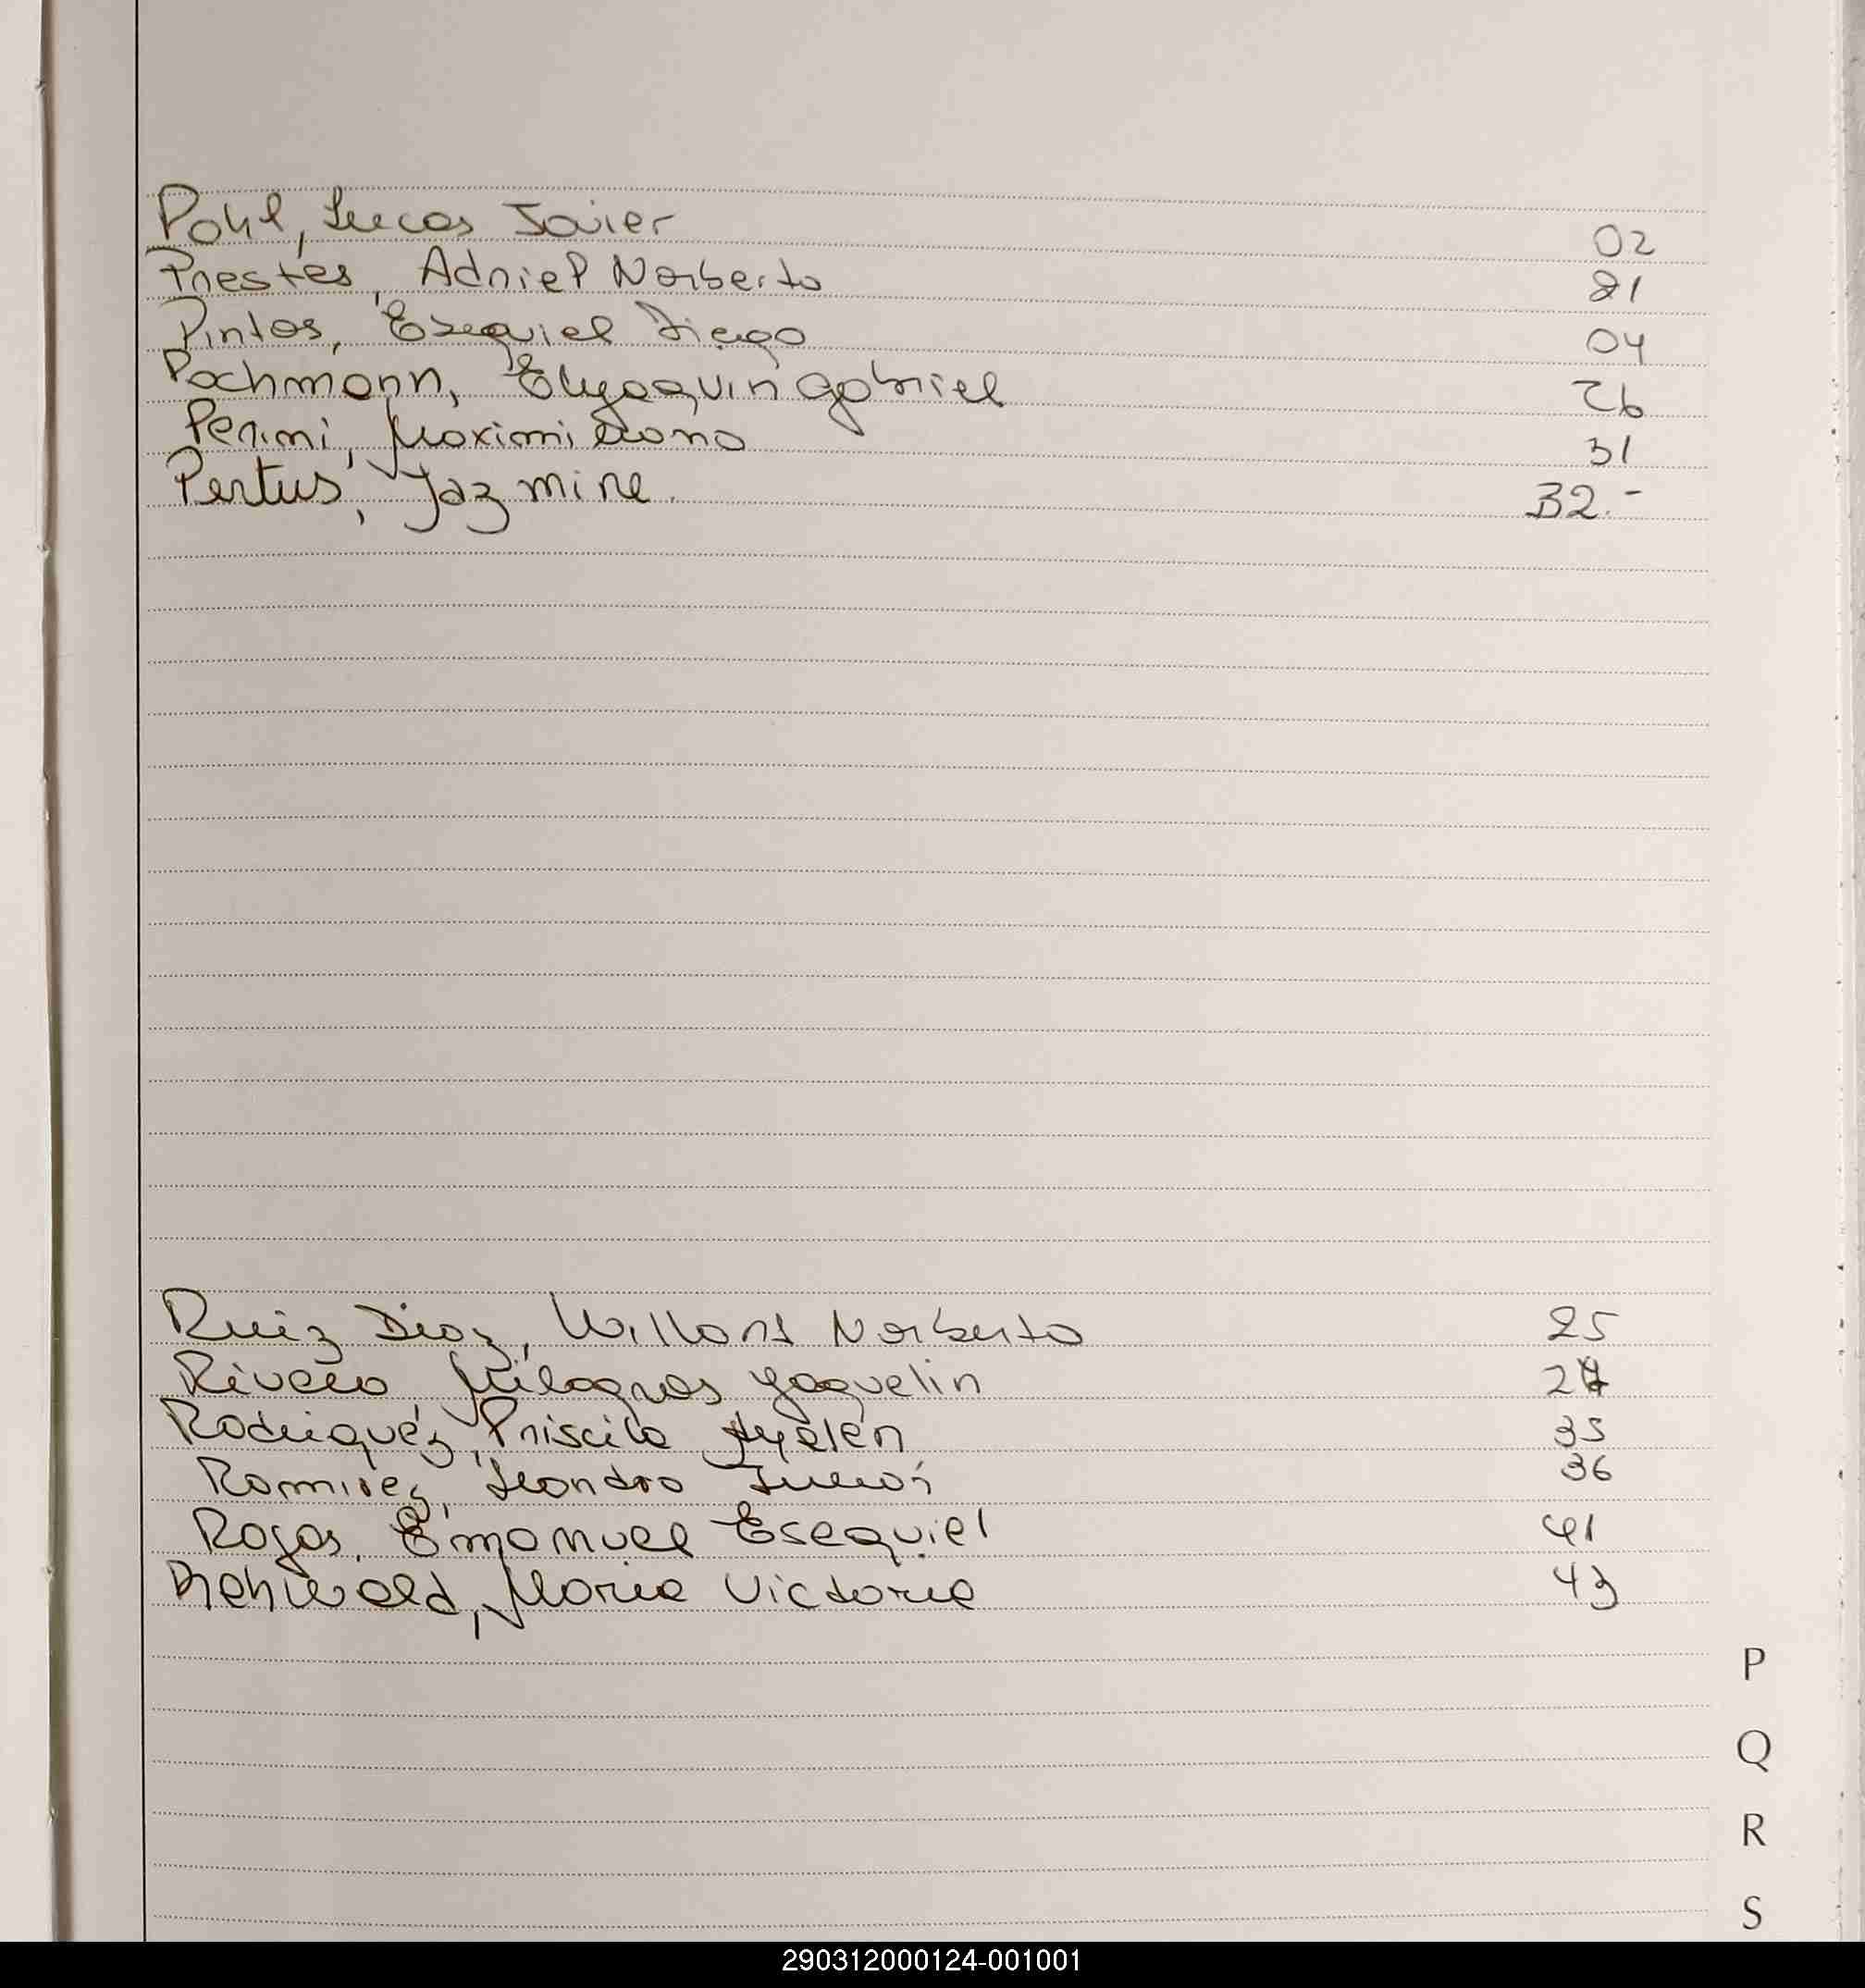 Pohl, Lucas Javier 02
Prestes, Adriel Norberto 21
Pintos, Esequiel Diego 04
Pochmann, Elyaquin Gabriel 26
Perini, Maximiliano 31
Pertus, Jazmine. 32.-
Ruiz Diaz, Willans Norberto 25
Rivero, Milagros Yaquelin 27
Rodriguéz, Priscila Ayelén 35
Ramirez, Leandro 36
Rojas, Emanuel Esequiel 41
Rehwald, Maria Victoria 43
P
Q
R
S
290312000124-001001